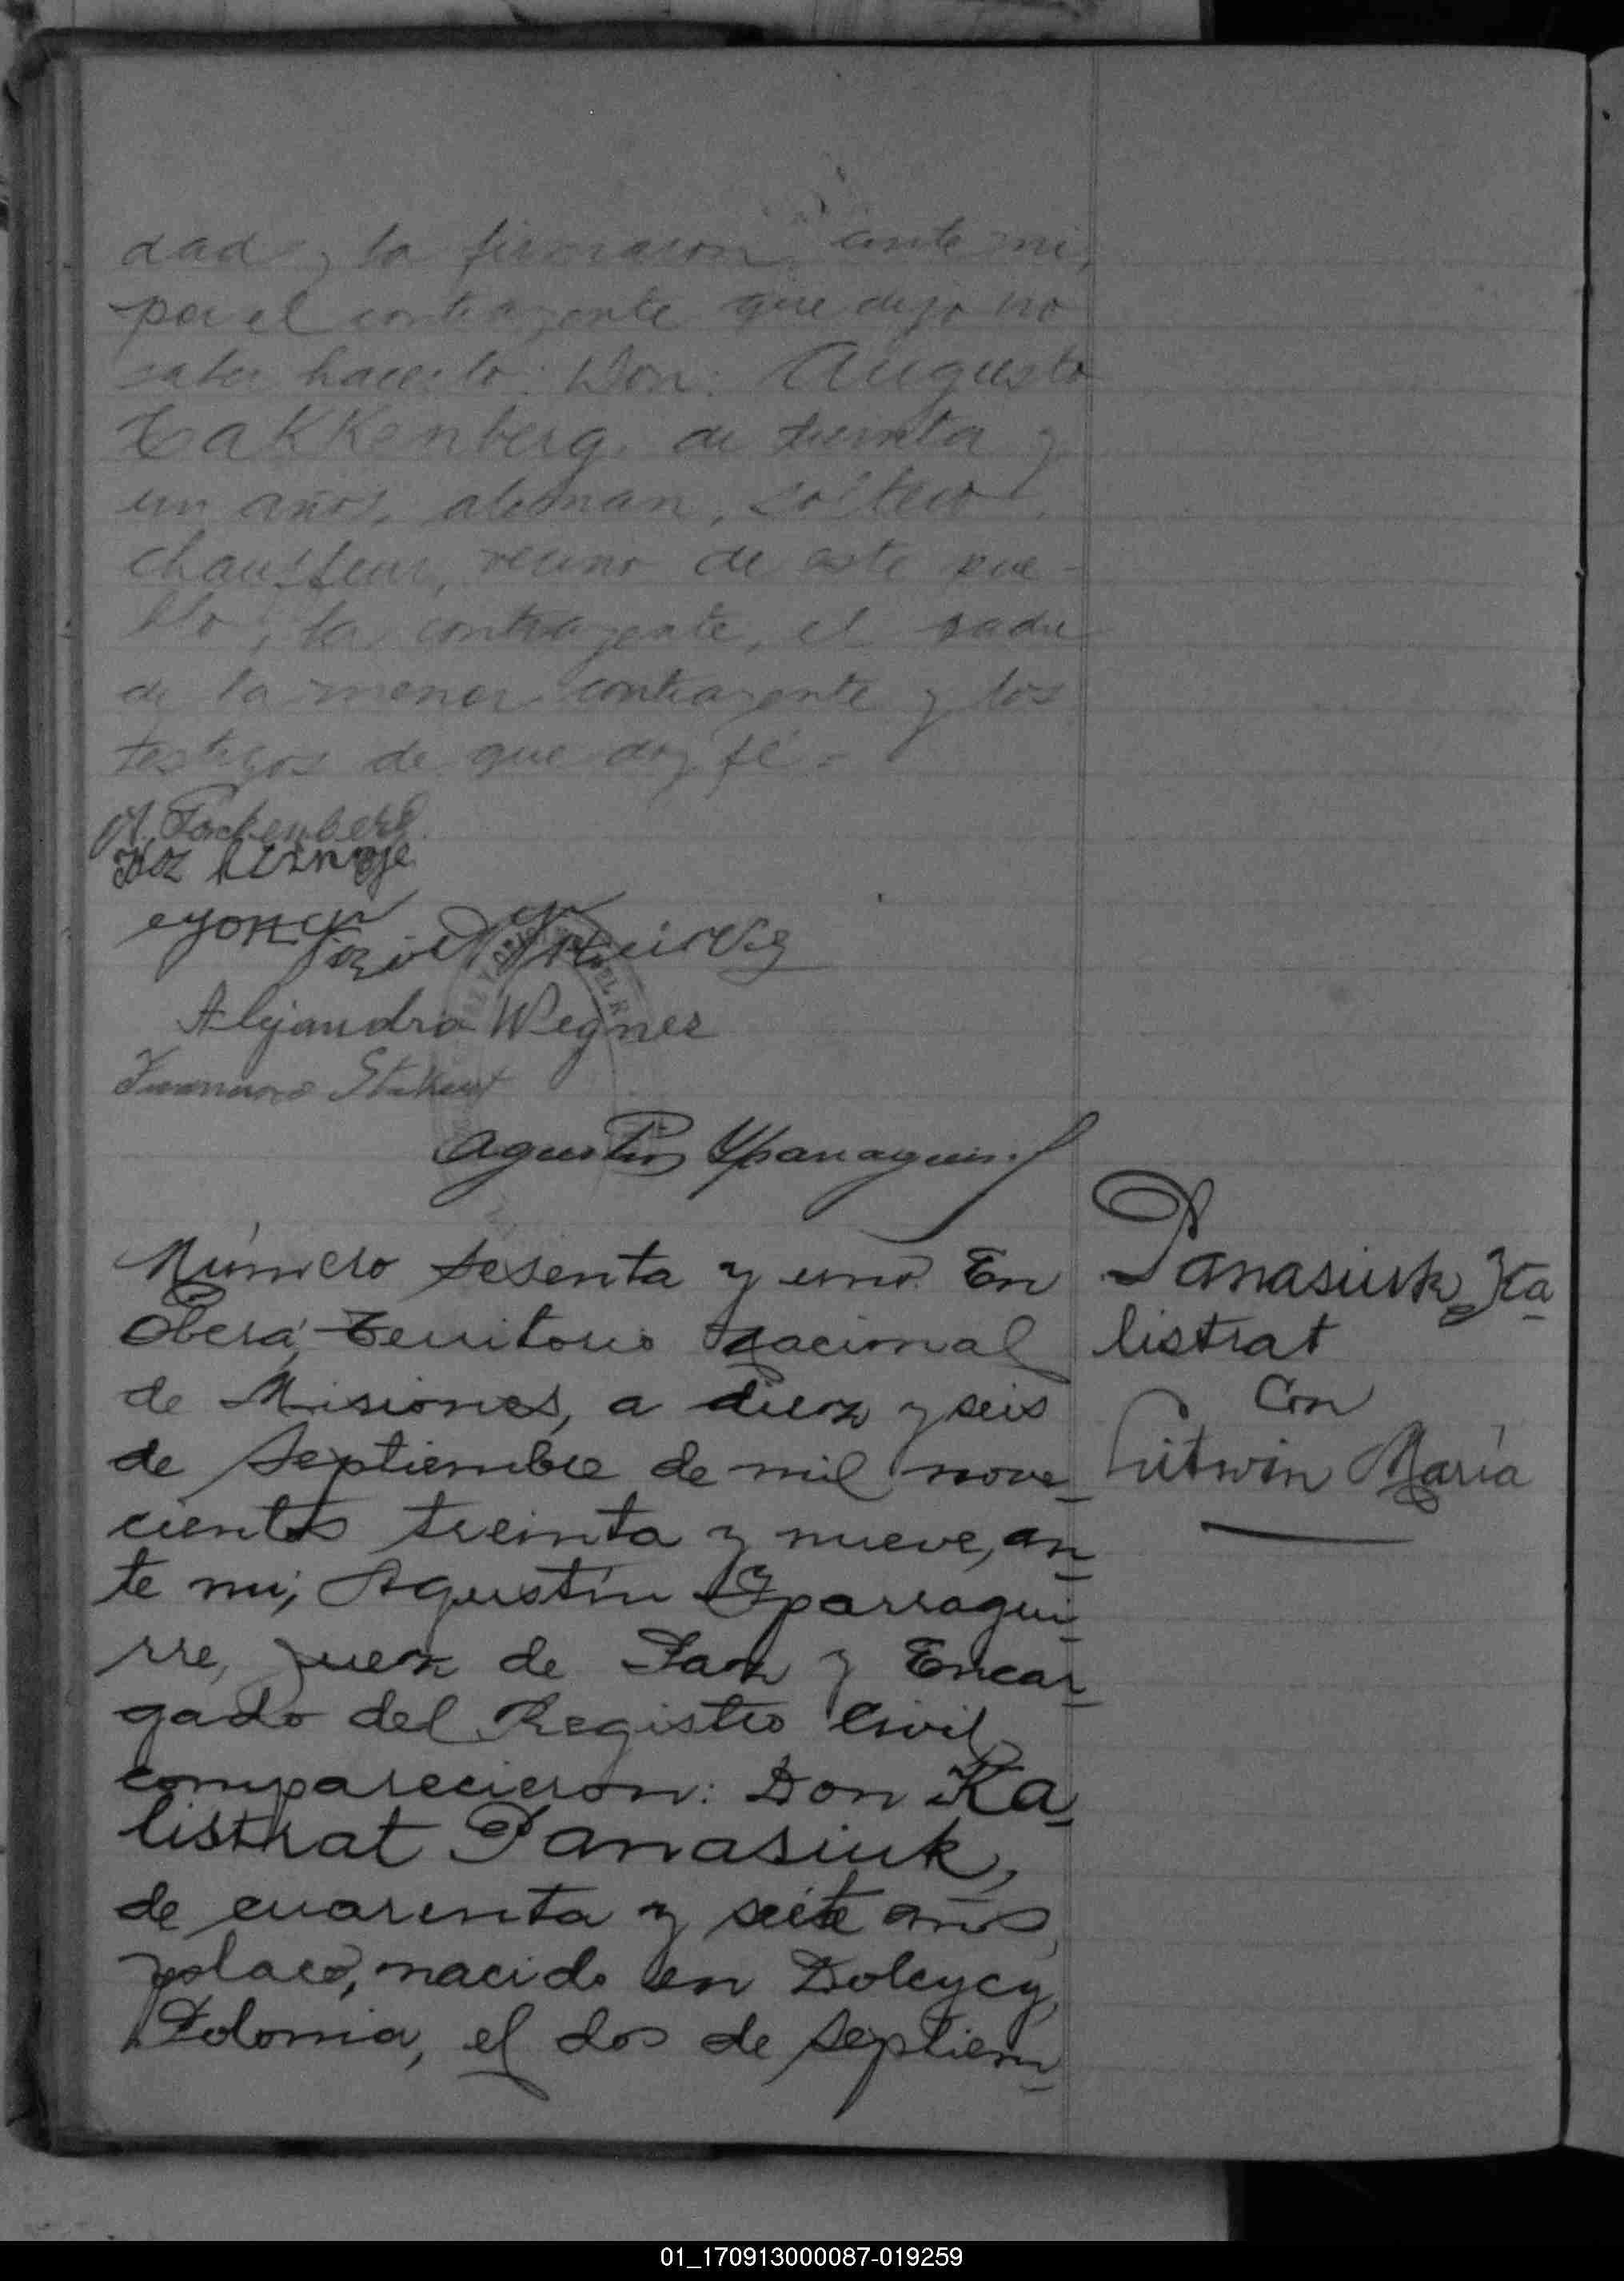 dad y la firmaron ante mi,
por el contrayente que dijo no
saber hacerlo: Don: Augusto
Takkenberg, de treinta y
un años, aleman, soltero,
chauffeur, vecino de este pue-
blo, la contrayente, el padre
de la menor contrayente y los
testigos de que doy fé.-
A. Tackenberg
Alejandro Wegner
Agustin Yparraguirre
Número sesenta y uno. En
Oberá, Territorio Nacional
de Misiones, a diez y seis
de Septiembre de mil nove-
cientos treinta y nueve, an-
te mi; Agustín Yparragui-
rre, Juez de Paz y Encar-
gado del Registro Civil
comparecieron: Don Ka-
listrat Panasiuk,
de cuarenta y siete años,
polaco, nacido en Dolcycy,
Polonia, el dos de Septiem-
Panasiuk, Ka-
listrat
Con
Litwin María
01_170913000087-019259